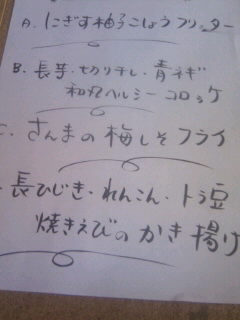 A. にぎす柚子こしょうフリッター
B. 長芋・切り干し・青ネギ
和風ヘルシーコロッケ
C. さんまの梅しそフライ
長ひじき・れんこん・トラ豆
焼きえびのかき揚げ